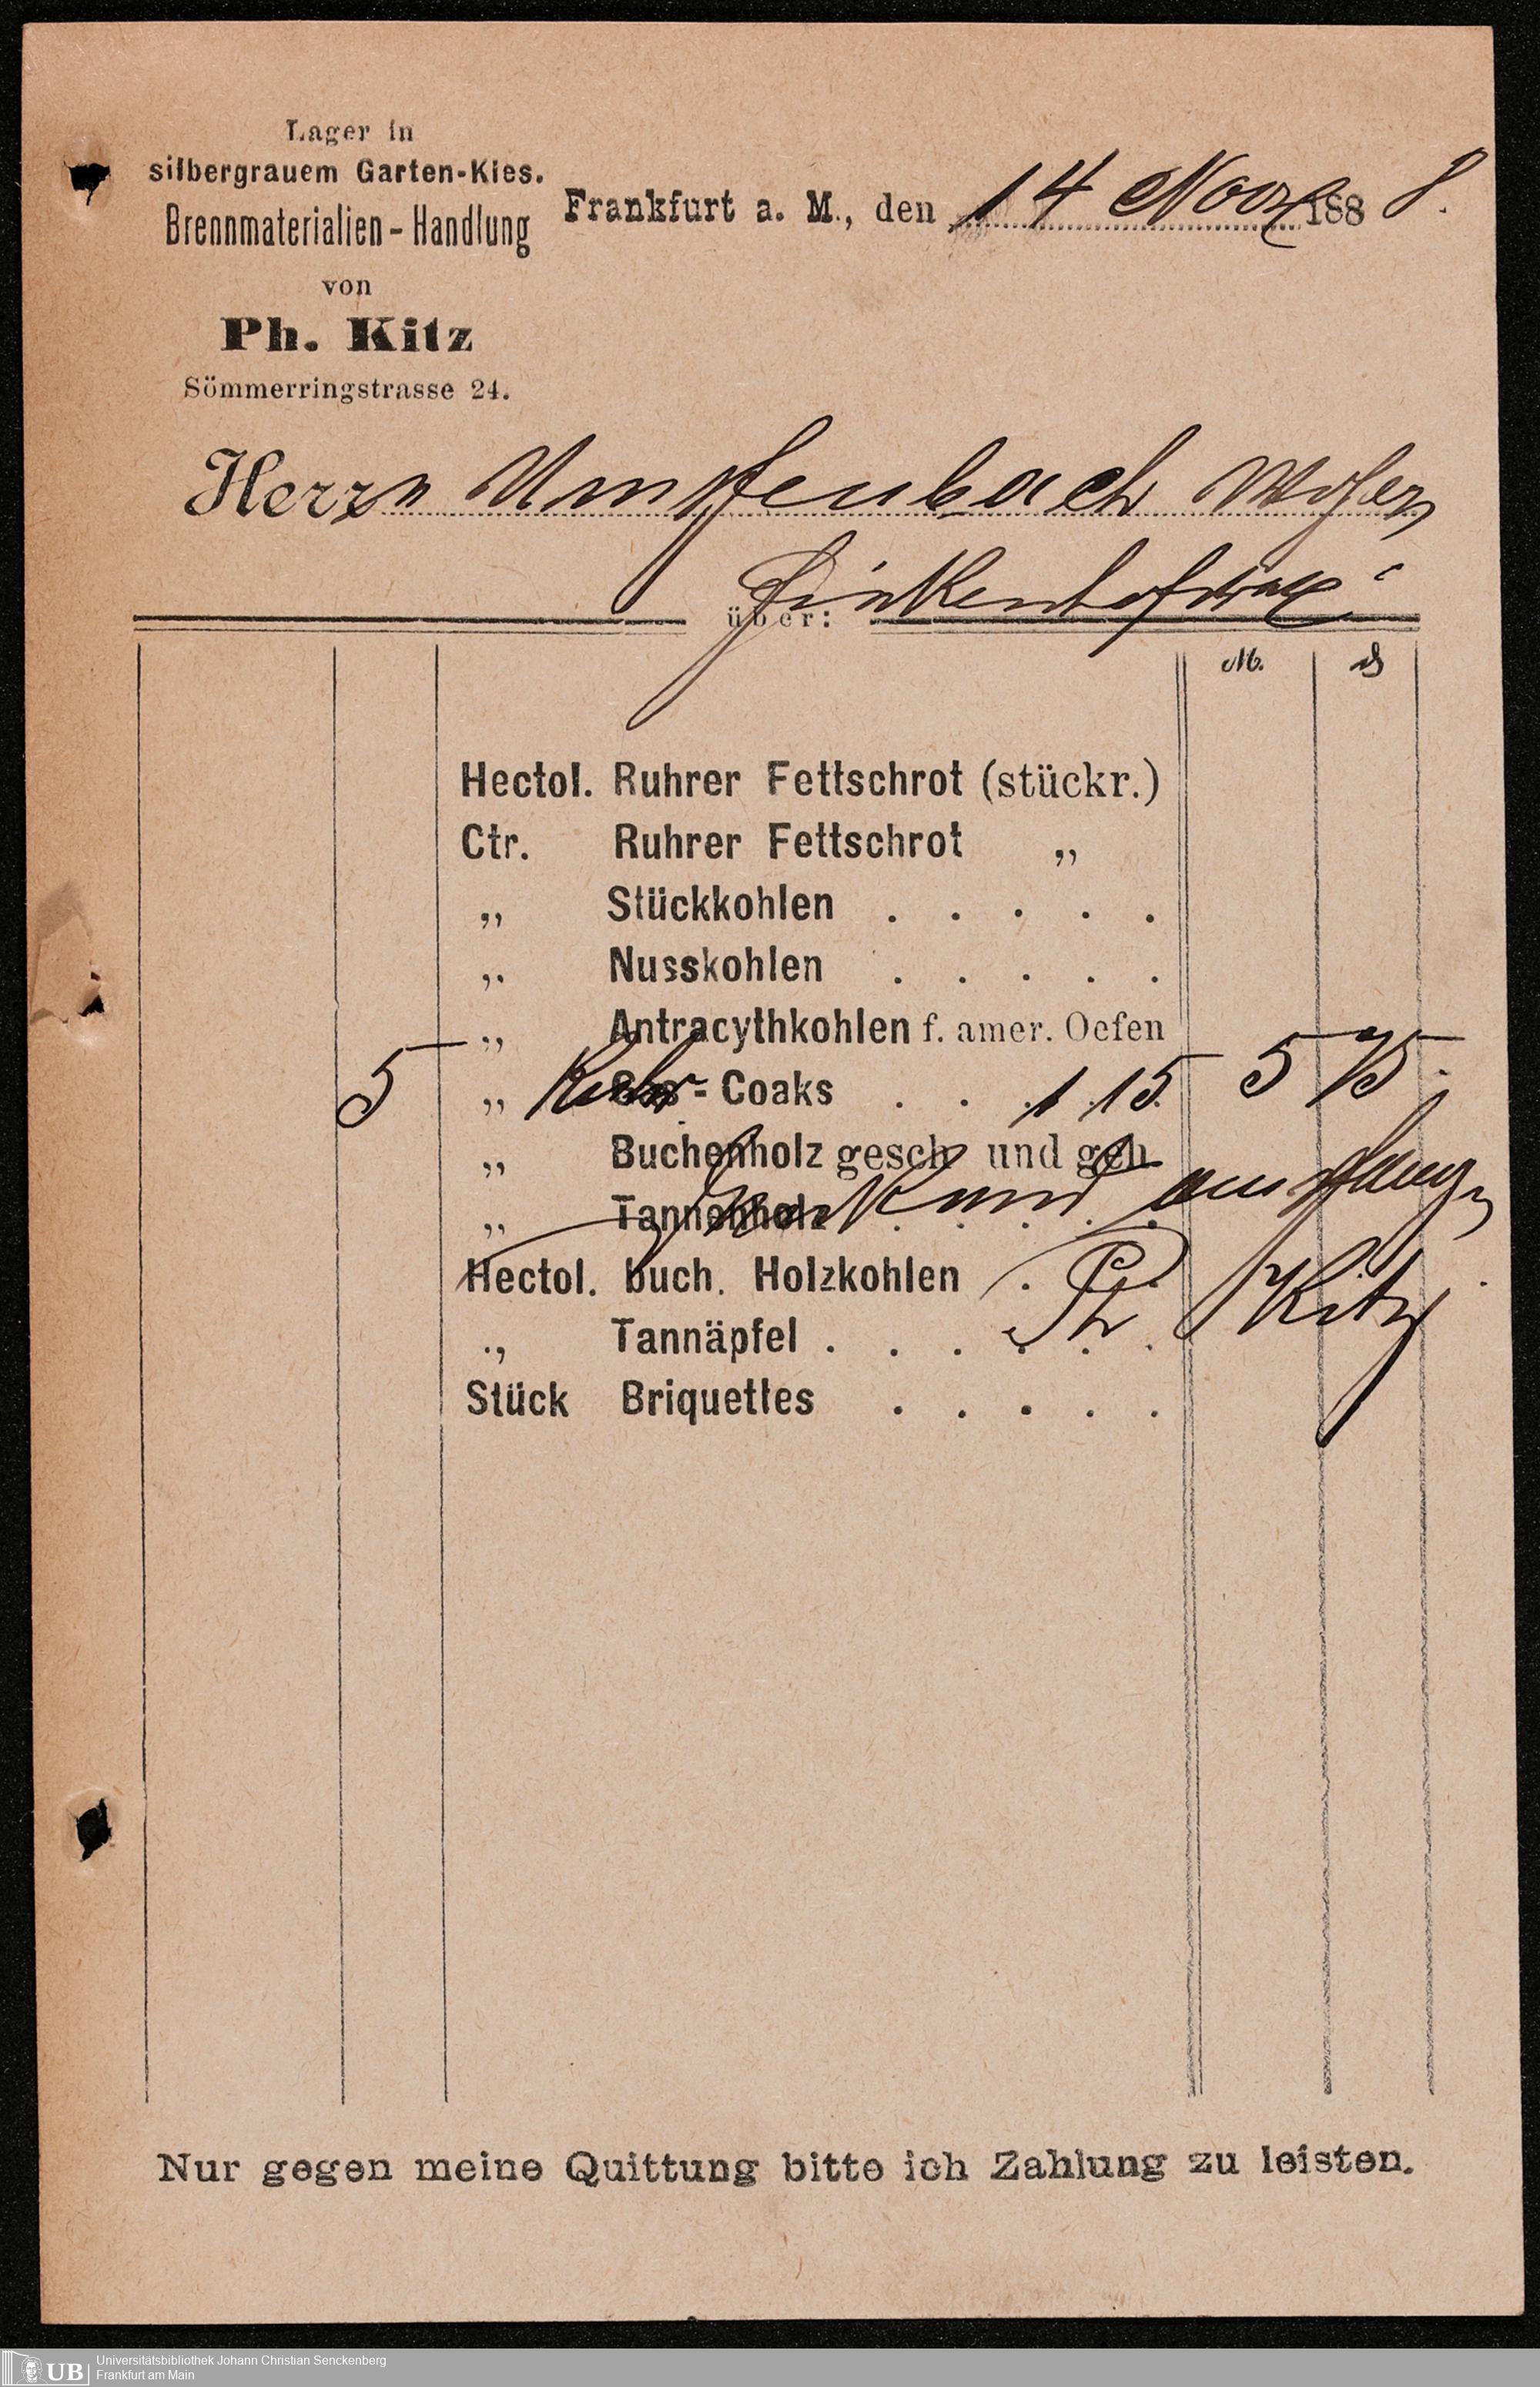 Lager in
silbergrauem Garten-Kies.
Brennmaterialien-Handlung
von
Ph. Kitz
Sömmerringstrasse 24.
Frankfurt a. M., den 14 Novr 1888.
Herrn Umpfenbach
Finkenhofstrasse
über:
M. ₰
Hectol. Ruhrer Fettschrot (stückr.)
Ctr. Ruhrer Fettschrot „
„ Stückkohlen . . . . .
„ Nusskohlen . . . . .
„ Antracythkohlen f. amer. Oefen
5 „ Ruhr-Coaks . . 1.15 5 75.
„ Buchenholz gesch. und geh.
„ Tannenholz . . . . .
dankend empfangen
Hectol. buch. Holzkohlen . . .
Ph Kitz
„ Tannäpfel . . . . . .
Stück Briquettes . . . . .
Nur gegen meine Quittung bitte ich Zahlung zu leisten.
UB
Universitätsbibliothek Johann Christian Senckenberg
Frankfurt am Main